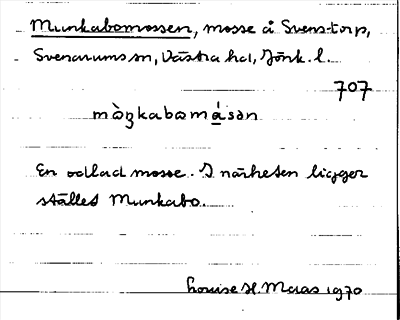 Munkabomossen, mosse å Svenstorp,
Svenarums sn, Västra hd, Jönk. l.
707
mòŋkabomå̀sən
En odlad mosse. I närheten ligger
stället Munkabo.
Louise H. Maas 1970